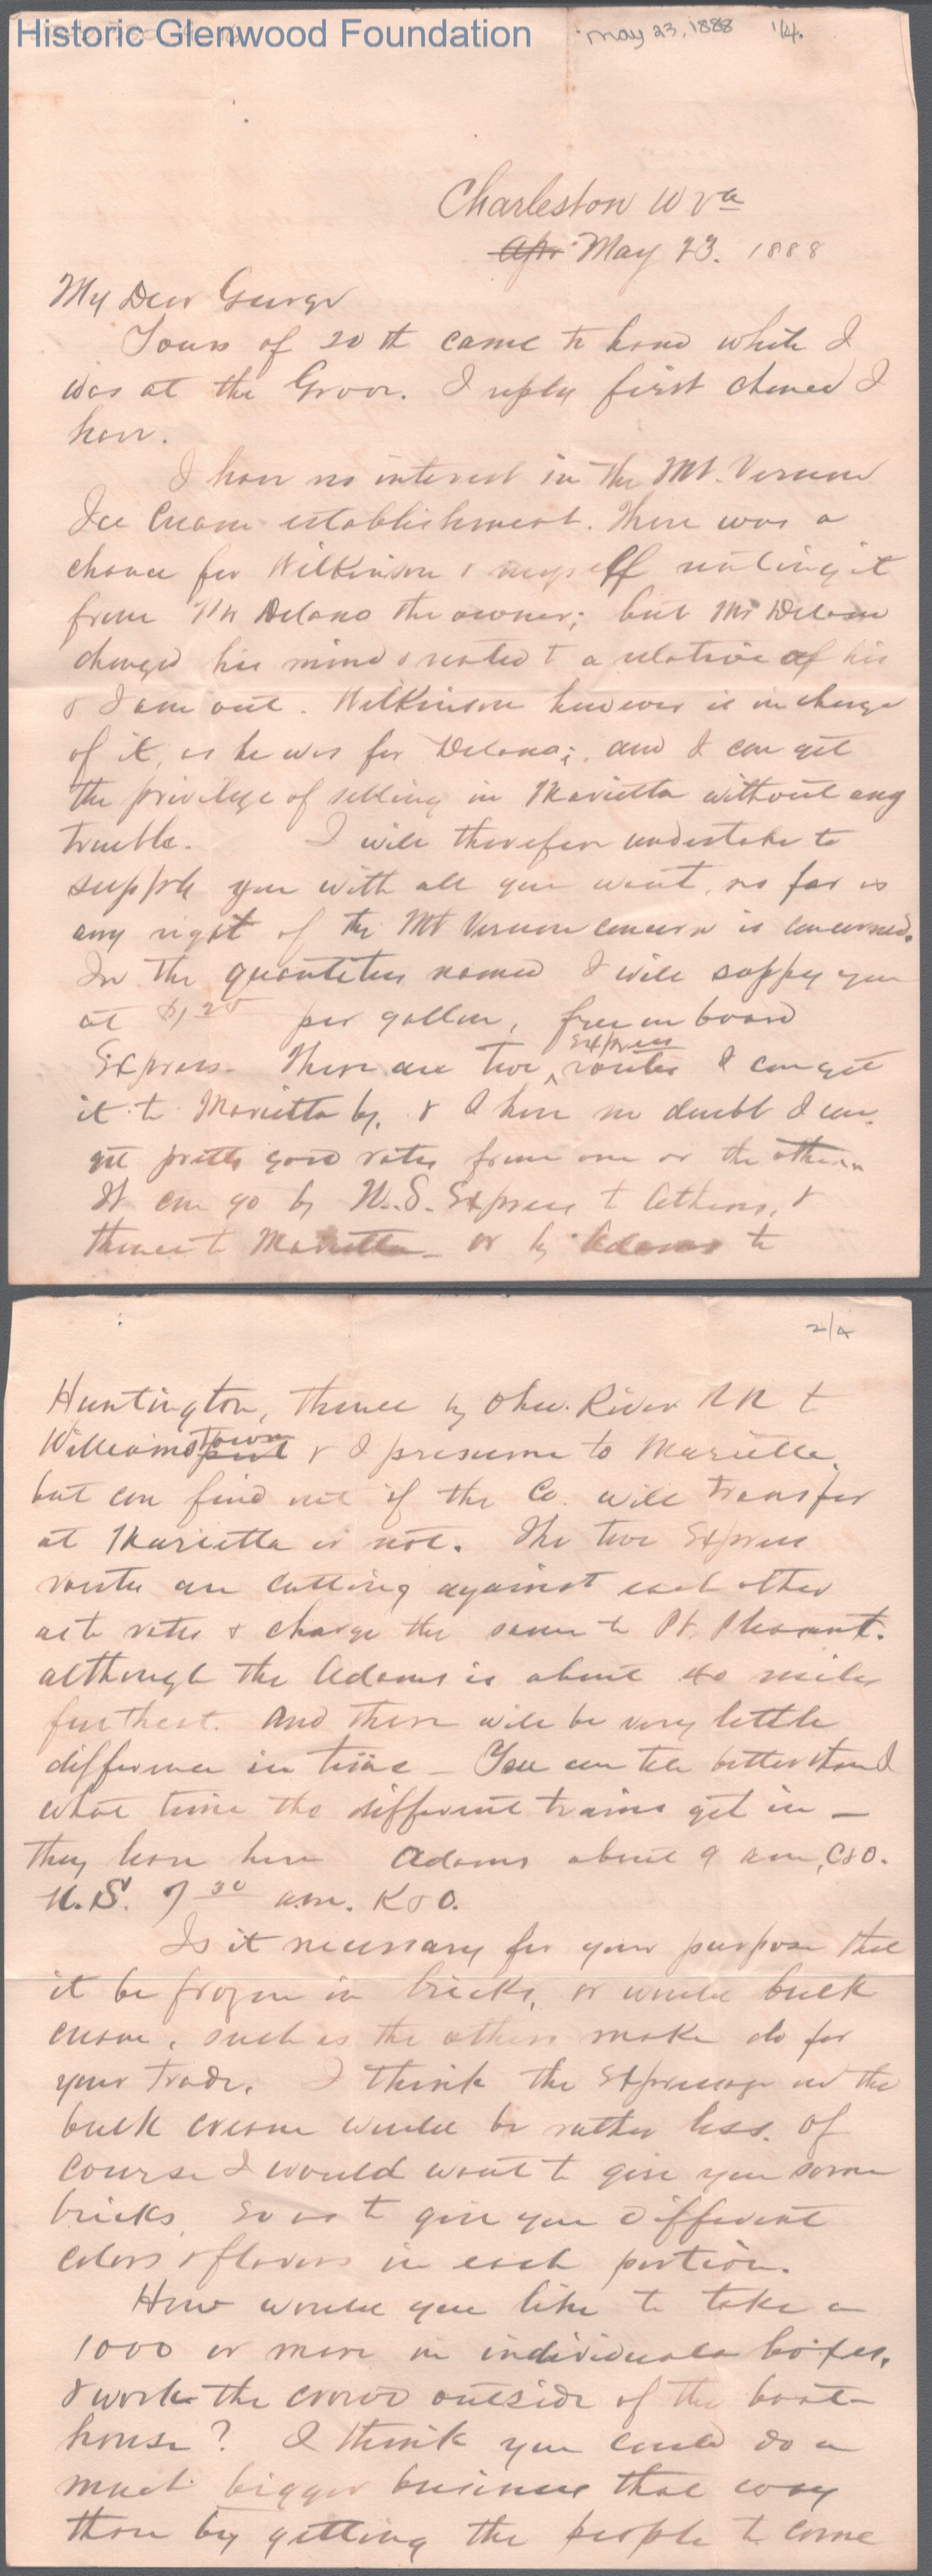 Historic Glenwood Foundation
May 23, 1888 1/4.
Charleston W Va
Apr May 23. 1888
My Dear George
Yours of 20th came to hand while I
was at the Grove. I reply first chance I
have.
I have no interest in the Mt. Vernon
Ice Cream establishment. There was a
chance for Wilkinson & myself renting it
from Mr Delano the owner; but Mr Delano
changed his mind & rented t a relative of his
& I am out. Wilkinson however is in charge
of it, as he was for Delano; and I can get
the privilege of selling in Marietta without any
trouble. I will therefore undertake to
supply you with all you want, so far as
any right of the Mt Vernon concern is concerned.
In the quantities named I will supply you
at $1.25 per gallon, free on board
Express. There are two express routes I can get
it to Marietta by, & I have no doubt I can
get pretty good rates from one or the other.
It can go by U.S. Express t Athens, &
thence t Marietta - or by Adams to
2/4
Huntington, thence by Ohio River RR t
Williamstown & I presume to Marietta,
but can find out if the Co. will transfer
at Marietta or not. The two Express
routes are cutting against each other
as to rates & charge the same to Pt. Pleasant.
although the Adams is about 40 miles
furthest. And there will be very little
difference in time - You can tell better than I
what time the different trains get in -
they leave here Adams about 9 am, C&O.
U.S. 7 30 a.m. K&O.
Is it necessary for your purpose that
it be frozen in bricks, or would bulk
cream, such as the others make do for
your trade. I think the Expressage on the
bulk cream would be rather less. Of
course I would want t give you some
bricks, so as t give you different
colors & flavors in each portion.
How would you like to take a
1000 or more in individual boxes,
& work the crowd outside of the boat-
house? I think you could do a
much bigger business that way
than by getting the people to come